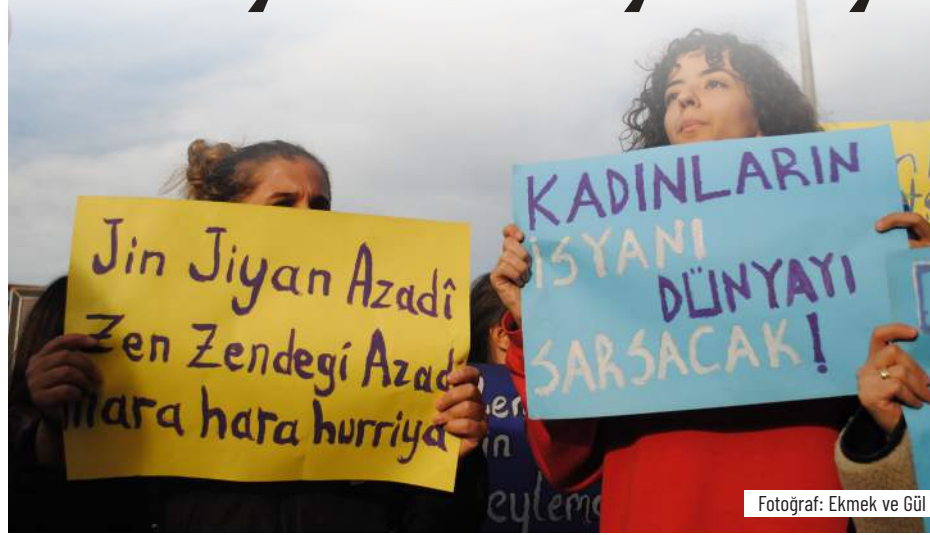 Jin Jiyan Azadî
Zen Zendegi Azad
mara hara hurriya
KADINLARIN
İSYANI
DÜNYAYI
SARSACAK!
Fotoğraf: Ekmek ve Gül